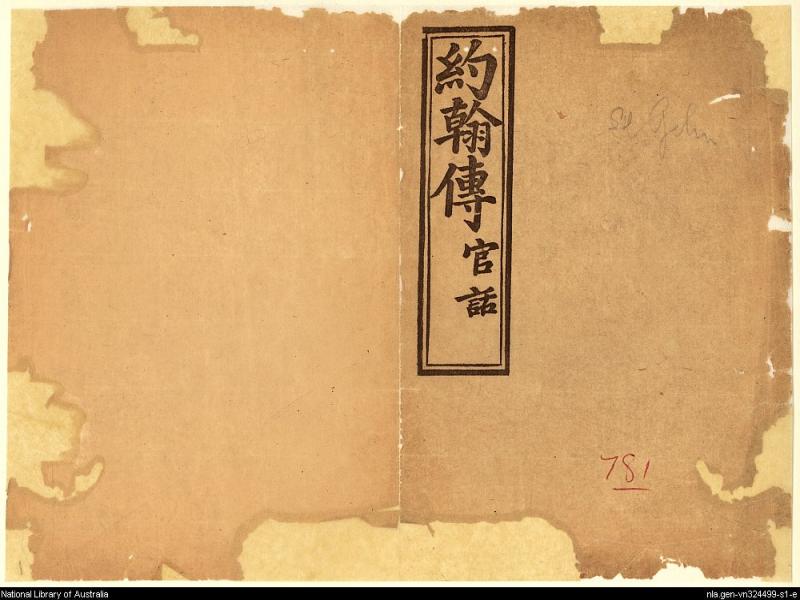 約翰傳官話
St John
781
National Library of Australia
nla.gen-vn324499-s1-e